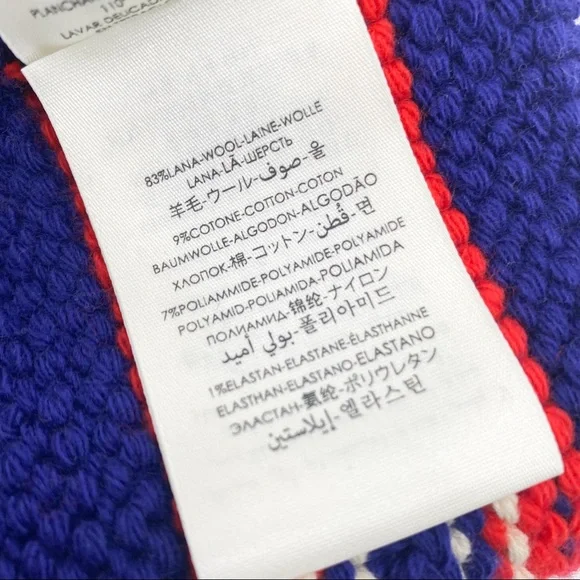 PLANCHAR
110°
LAVAR DELICADA
83%LANA-WOOL-LAINE-WOLLE
LANA-LÃ-ШЕРСТЬ
羊毛-ウール-صوف-울
9%COTONE-COTTON-COTON
BAUMWOLLE-ALGODON-ALGODÃO
ХЛОПОК-棉-コットン-قُطن-면
7%POLIAMMIDE-POLYAMIDE-POLYAMIDE
POLYAMID-POLIAMIDA-POLIAMIDA
ПОЛИАМИД-锦纶-ナイロン
بولي أميد-폴리아미드
1%ELASTAN-ELASTANE-ÉLASTHANNE
ELASTHAN-ELASTANO-ELASTANO
ЭЛАСТАН-氨纶-ポリウレタン
إيلاستين-엘라스틴